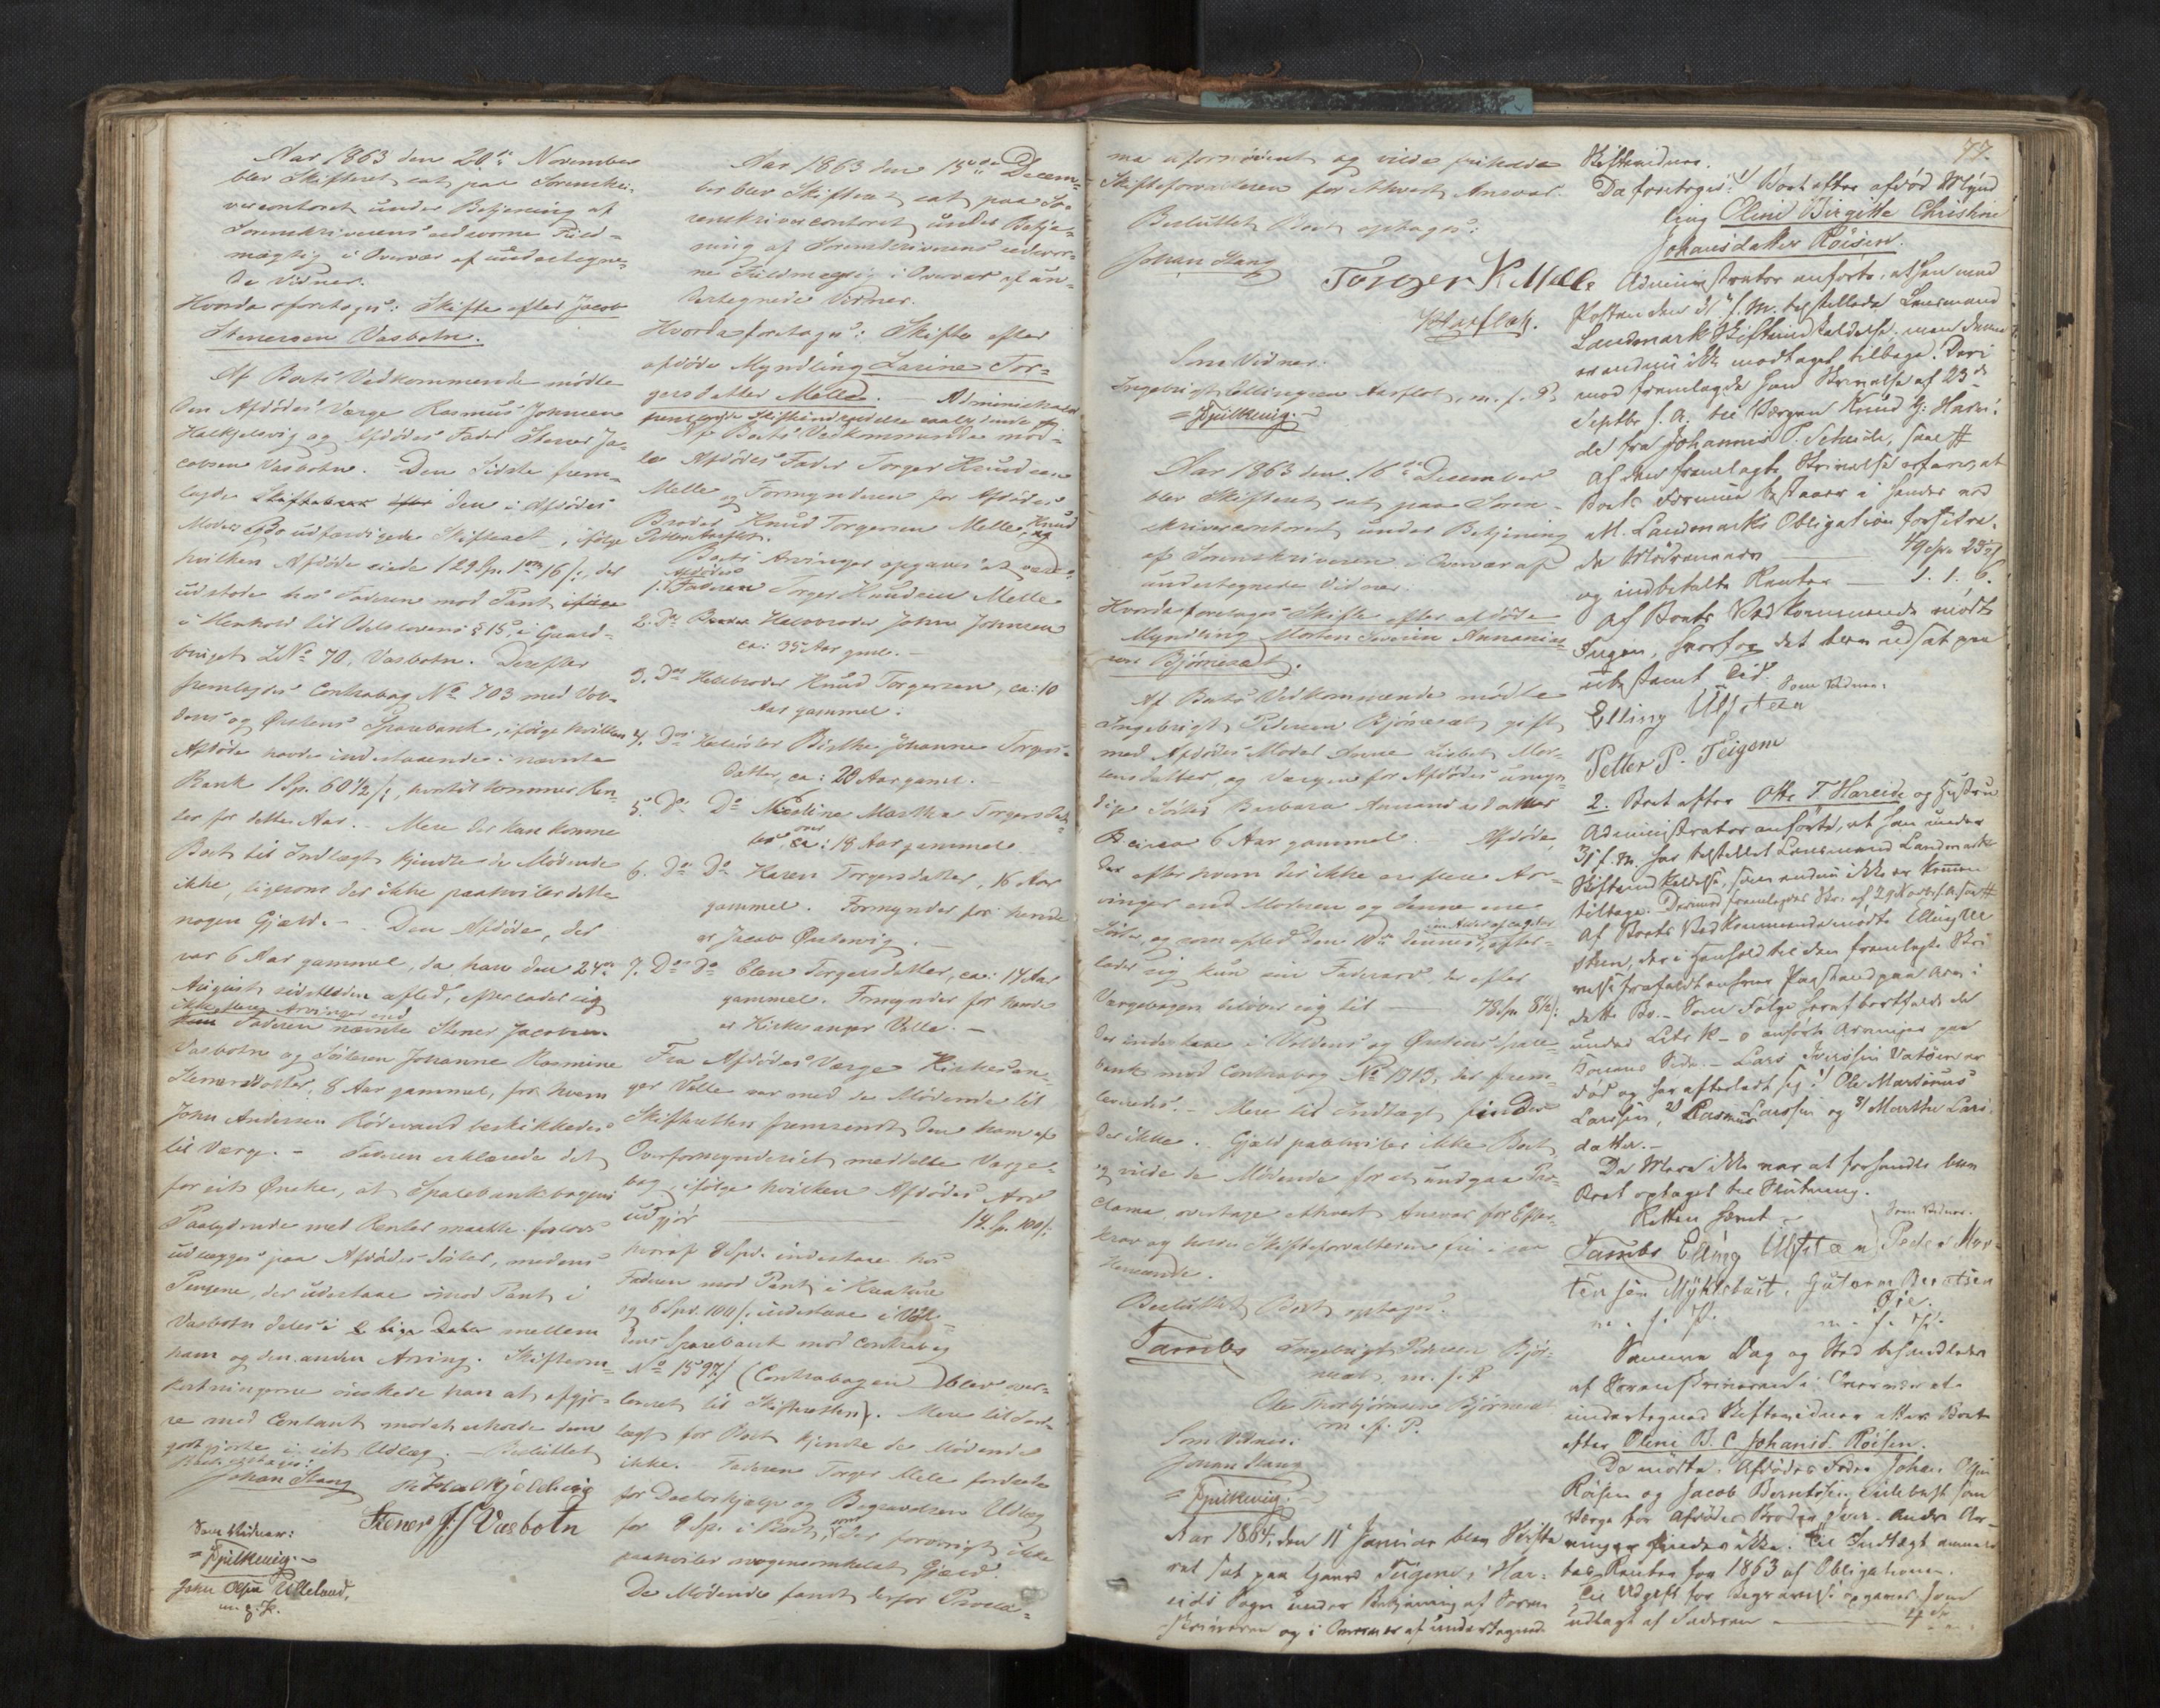 Aar 1863 den 20de November
blev Skifteret sat paa Sorenskri-
vercontoret under Betjening af
Sorenskriverens edsvorne Fuld-
mægtig i Overvær af undertegne-
de Vidner.
Hvorda foretages: Skifte efter Jacob
Stenersen Vasbotn.
Af Boets Vedkommende mødte
den Afdødes Værge Rasmus Johnsen
Halkjelsvig og Afdødes Fader Stener Ja-
cobsen Vasbotn. Den Sidste frem-
lagde den i Afdødes
Moders Bo udfærdigede Skifteact, ifølge
hvilken Afdøde eiede 129 Sp. 1 ort 16 s:, der
udstode hos Faderen mod Pant
i Henhold til Odelslovens § 15, i Gaard-
bruget L.No 70, Vasbotn. Derefter
fremlagdes Contrabog No 703 med Vol-
dens og Ørstens Sparebank, ifølge hvilken
Afdøde havde indestaaende i nævnte
Bank 1 Sp. 60 1/2 s:, hvortil kommer Ren-
ter for dette Aar. Mere der kan komme
Boet til Indtægt kjendte de Mødende
ikke, ligesom der ikke paahviler dette
nogen Gjæld. - Den Afdøde, der
var 6 Aar gammel, da han den 24de
August sidstleden afled, efterlader sig
ikke flere Arvinger end
Faderen nævnte Stener Jacobsen
Vasbotn og Søsteren Johanne Rasmine
Stenersdotter, 8 Aar gammel, for hvem
John Andersen Rödevand beskikkedes
til Værge. - Faderen erklærede det
for sit Ønske, at Sparebankbogens
Paalydende med Renter maatte forlods
udlægges paa Afdødes Søster, medens
Pengene, der udestaae mod Pant i
Vasbotn deles i 2 lige Deler mellem
ham og den anden Arving. Skifteom-
kostningerne ønskede han at afgjø-
re med Contant mod at erholde dem
godtgjorte i sit Udlæg. - Besluttet
Boet optages:
Johan Stang R J Halkjelsvig
Stener J. Vasbotn
Som Vidner:
Spilkevig.
John Olsen Ulleland,
m. f. P.
Aar 1863 den 15de Decem-
ber blev Skifteret sat paa So-
renskrivercontoret under Betje-
ning af Sorenskriverens edsvor-
ne Fuldmægtig i Overvær af un-
dertegnede Vidner.
Hvorda foretages: Skifte efter
afdøde Myndling Larine Tor-
gersdatter Melle. - Administrator
fremlagde Skifteindkaldelse
Af Boets Vedkommende mød-
te Afdødes Fader Torger Knudsen
Melle og Formynderen for Afdødes
Broder Knud Torgersen Melle, Knud
Petter Aarflot.
Boets Arvinger opgaves at være:
1. Afdødes Faderen Torger Knudsen Melle
2. Do Halvbroder John Johnsen
ca: 35 Aar gml. -
3. Do Helbroder Knud Torgersen, ca: 10
Aar gammel.
4. Do Helsøster Birthe Johanne Torgers-
datter, ca: 20 Aar gaml. -
5. Do Do Martha Torgersdat-
ter, over 18 Aar gammel
6. Do Do Karen Torgersdatter, 16 Aar
gammel. Formynder for hende
er Jacob Østensvig. -
7. Do Do Elen Torgersdatter, ca: 14 Aar
gammel. Formynder for hende
er Kirkesanger Velle. -
Fra Afdødes Værge Kirkesan-
ger Velle var med de Mødende til
Skifteretten fremsendt den ham af
Overformynderiet meddelte Værge-
bog, ifølge hvilken Afdødes Arv
udgjør 14. Sp. 100 s:
hvoraf 8 Spd. indestaae hos
Faderen mod Pant i Kreature
og 6 Spd. 100 s: indestaae i Vol-
dens Sparebank mod Contrabog
No 1597 (Contrabogen) blev over-
leveret til Skifteretten). Mere til Ind-
tægt for Boet kjendte de Mødende
ikke. Faderen Torger Melle fordrede
for Doctorhjælp og Begravelsen Udlæg
for 8 Sp. i Boet, som der forøvrigt ikke
paahviler nogensomhelst Gjæld.
De Mødende fandt derfor Procla-
77.
ma ufornødent og vilde friholde
Skifteforvalteren for ethvert Ansvar.
Besluttet Boet optages:
Johan Stang
Torger K Melle
K P Aarflot.
Som Vidner:
Ingebrigt Ellingsen Aarflot, m. f. P
Spilkevig.
Aar 1863 den 16de December
blev Skifteret sat paa Soren-
skrivercontoret under Betjening
af Sorenskriveren i Overvær af
undertegnede Vidner.
Hvorda foretages Skifte efter afdøde
Myndling Morten Severin Annanias-
sen Bjørneset.
Af Boets Vedkommende mødte
Ingebrigt Pedersen Bjørneset, gift
med Afdødes Moder Lisbet Mor-
tensdatter, og Værgen for Afdødes umyn-
dige Søster Barbara Annaniadatter
circa 6 Aar gammel. Afdøde,
der efter hvem der ikke ere flere Ar-
vinger end Moderen og denne ene
Søster, og som afled den 10de dennes, efter-
lader sig kun sin Fædrearv, der efter
Værgebogen beløber sig til 78 Sp. 8 1/2 s:
der indestaae i Voldens og Ørstens Spare-
bank mod Contrabog No 1713, der frem-
leveredes. - Mere til Indtægt findes
der ikke. Gjæld paahviler ikke Boet,
og vilde de Mødende for at undgaa Pro-
clama, overtage ethvert Ansvar for Efter-
krav og holde Skifteforvalteren fri i saa
Henseende.
Besluttet Boet optages.
Tambs Ingebrigt Pedersen Bjør-
neset, m. f. P
Ole Thorbjørnsen Bjørneset
m. f. P.
Som Vidner:
Johan Stang
Spilkevig.
Aar 1864, den 11 Januar blev Skifte
ret sat paa Gaard Teigene i Har-
eids Sogn under Betjening af Soren-
skriveren og i Overvær af undertegnede
Skiftevidner.
Da foretages: 1) Boet efter afdød Mynd
ling Oline Birgitte Christine
Johansdatter Röisen.
Administrator anførte, at han med
Posten den s. M. tilstillede Lensmand
Landmark Skifteindkaldelse, men denne
er endnu ikke modtaget tilbage. Deri
mod fremlagde han Skrivelse af 23de
Septbr f. A. til Værgen Knud H: Harei-
de fra Johannes P.
Af den fremlagte Skrivelse erfares, at
Boets Formue bestaaer i
Landmarks Obligation
de Mödrearv 49 Spd 23 s
og indbetalte Renter 1. 1. 6.
Af Boets Vedkommende mødte
Ingen, hvorfor det blev udsat paa
ubestemt Tid.
Som Vidner:
Elling Ulfsten
Petter P. Teigene
2. Boet efter Otte T. Hareide og Hustru
Administrator anførte, at han under
31 f. M. har tilstillet Lensmand Landmark
Skifteindkaldelse, som endnu ikke er kommen
tilbage.
Af Boets Vedkommende mødte Elling Ulf
sten, der i Henhold til den fremlagte Skri
velse frafaldt enhver Paastand paa Arv i
dette Bo. - Som Følge heraf bortfalde de
under Litr K - o anførte Arvinger paa
Konens Side. - Lars Iversen er
død og har efterladt sig: 1) Ole Martinus
Larssen, 2) Rasmus Larssen og 3) Marthe Lars-
datter. -
Da Mere ikke var at forhandle blev
Boet optaget til Slutning.
Retten hævet.
Som Vidner.
Tambs Elling Ulfsten Peder Mor-
tensen Myklebust, Gutorm Berntsen
Öie.
m. f. P. m. f. P.
Samme Dag og Sted behandledes
af Sorenskriveren i Overvær af
undertegnede Skiftevidner atter Boet
efter Oline B. C Johansd. Röisen.
Da mødte Afdødes Fader Johan
Röisen og Jacob Berntsen Eilebust som
Værge for Afdødes Broder Iver. Andre Ar-
vinger findes ikke. Til Indtægt anmeld
tes Renter for 1863 af Obligationen.
Til Udgift for Begravelse opgaves som
udlagt af Faderen 4 Sp